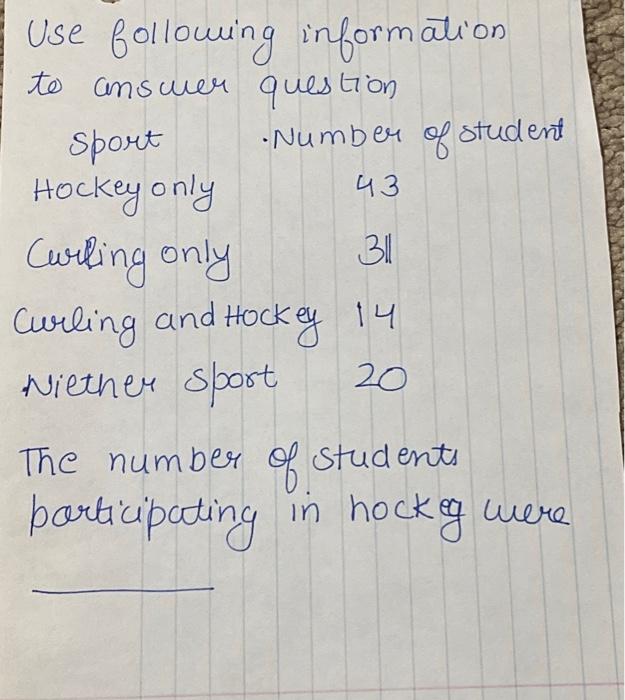 Use following information
to answer question
Sport .Number of student
Hockey only 43
Curling only 31
Curling and Hockey 14
Niether sport 20
The number of students
participating in hockey were